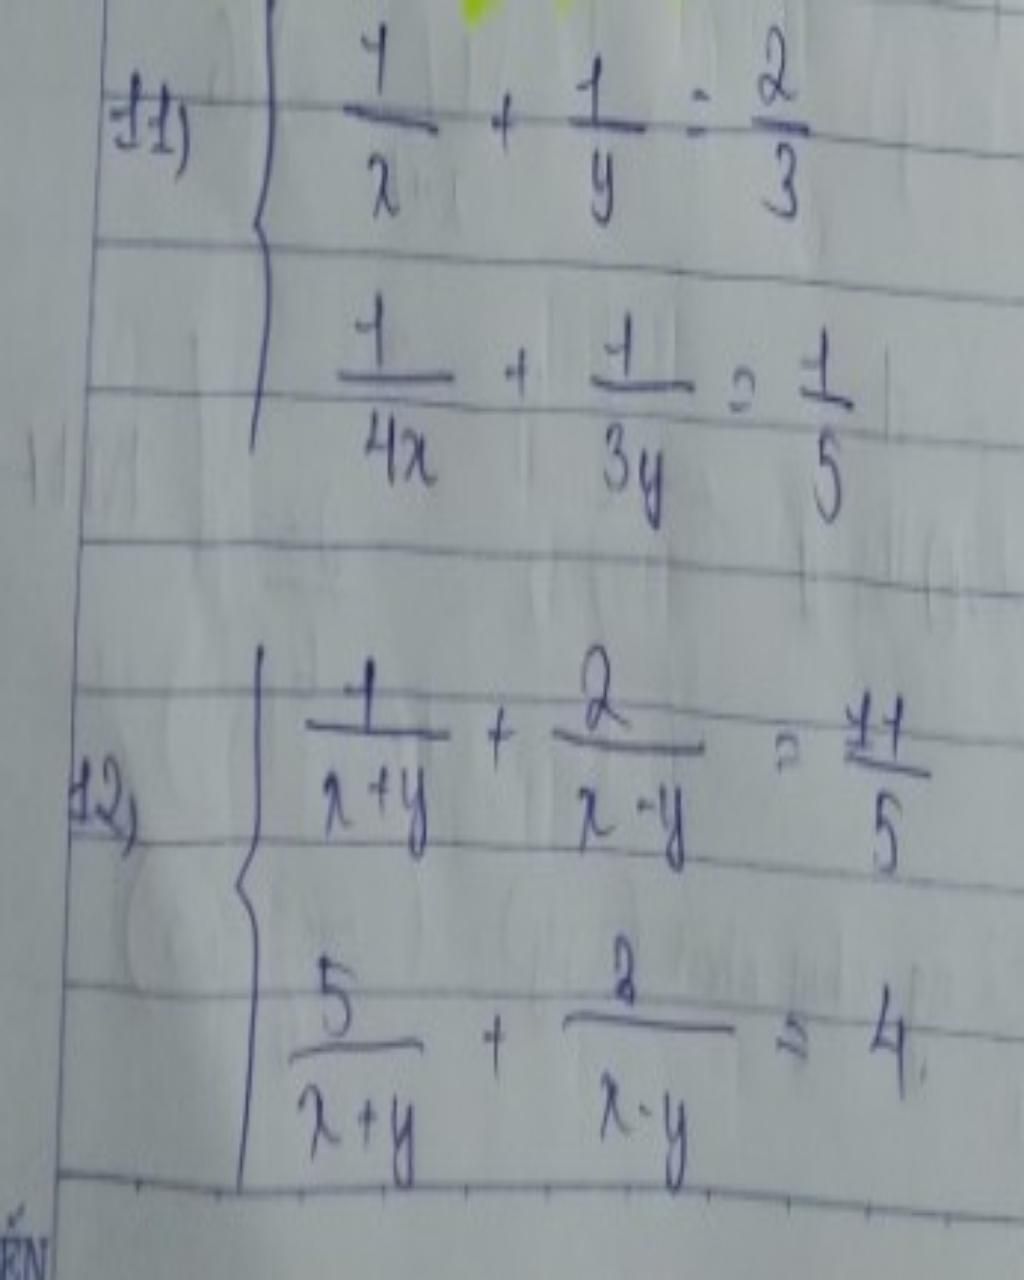 11) 1/x + 1/y = 2/3
1/4x + 1/3y = 1/5
12) 1/x+y + 2/x-y = 11/5
5/x+y + 3/x-y = 4
ẾN